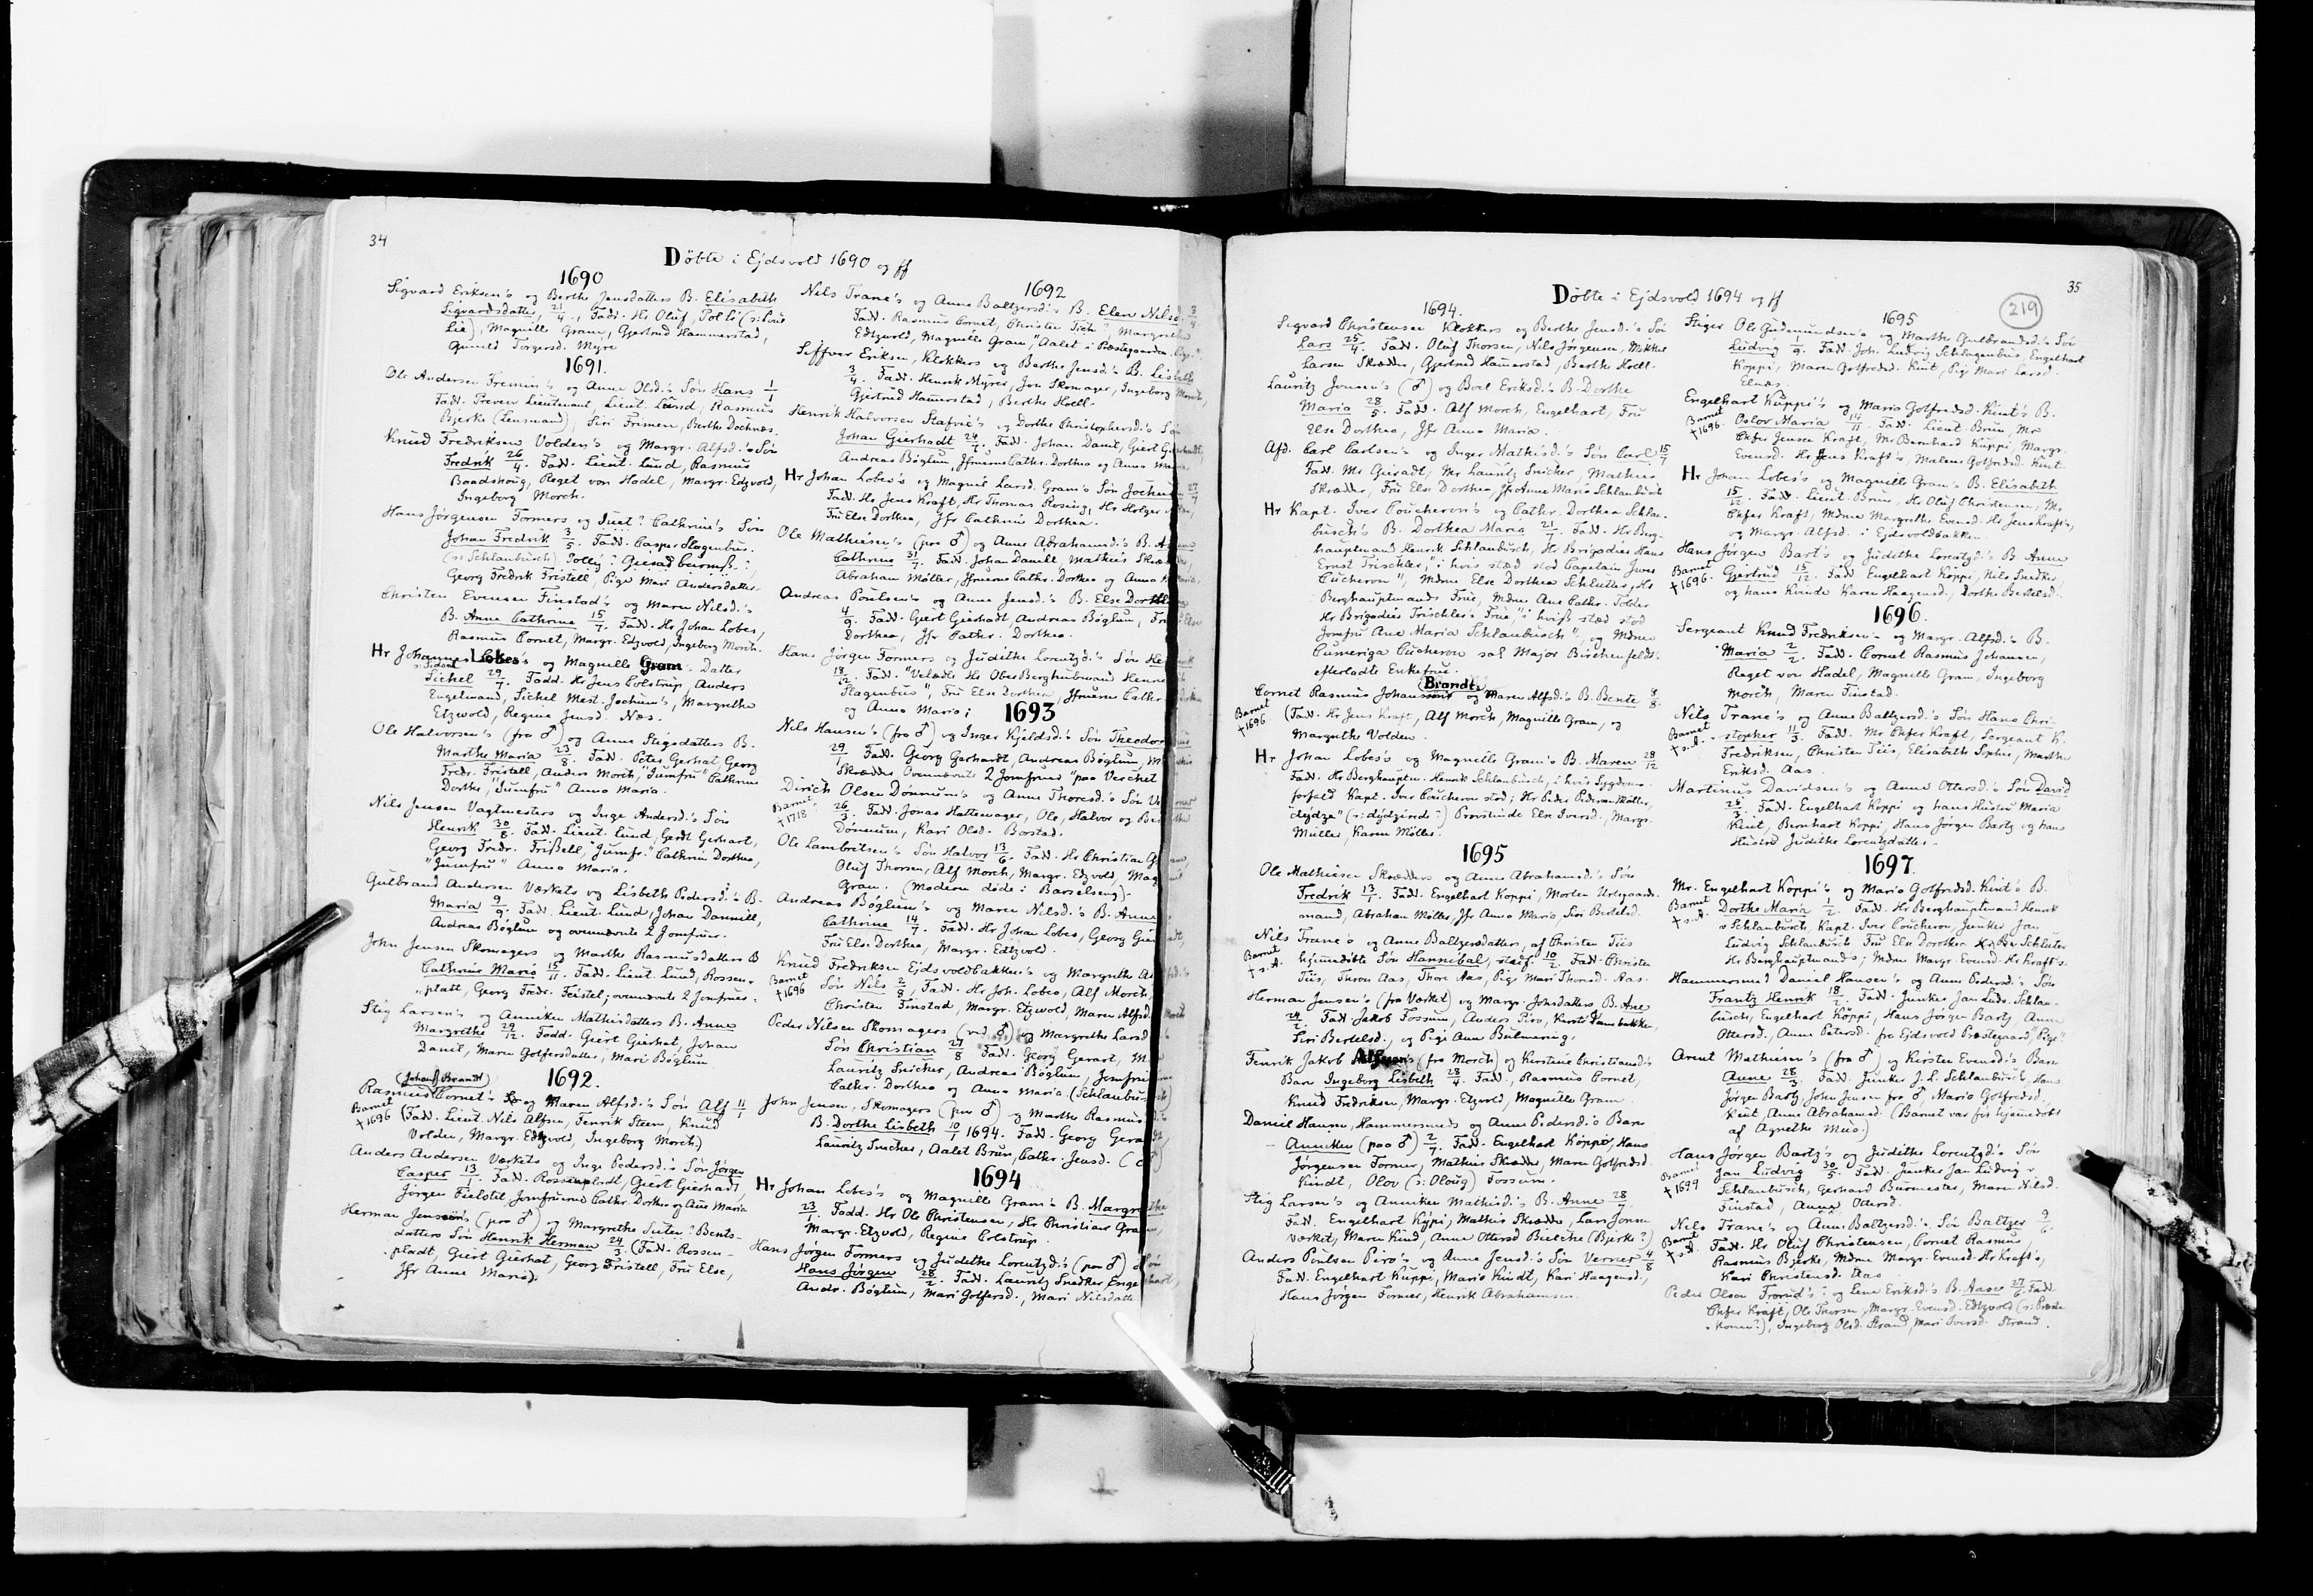 34
Döbte i Ejdsvold 1690 og ff
1690
Sigvard Eriksen's og Berthe Jensdatters B. Elisabeth
Sigvardsdatter, 21/4. Fadd. Hr Oluf, Pol Li (ɔ: Poul
Lie), Magnille Gram, Gjertrud Hammerstad,
Gunild Torgersd. Myre
1691.
Ole Andersen Fremin's og Anne Olsd.'s Søn Hans 1/1
Fadd. Prever Lieutenant, Lieut. Lund, Rasmus
Bjerke (Lensmand), Siri Frimen, Berthe Doknæs.
Knud Fredriksen Volden's og Margr. Alfsd.'s Søn
Fredrik 26/4. Fadd. Lieut. Lund, Rasmus
Baadshoug, Reget von Hadel, Margr. Edzvold,
Ingeborg Morch.
Hans Jørgensen Formers og Juet? Cathrine's Søn
Johan Fredrik 3/5. Fadd. Casper Slagenbus.
(ɔ: Schlanbusch)
Georg Fredrik Fristell, Pige Mari Andersdatter.
Christen Evensen Finstad's og Maren Nilsd.'s
B. Anne Cathrine 15/7. Fadd. Hr Johan Lobes,
Rasmus Cornet, Margr. Edzvold, Ingeborg Morch.
Hr Johannes Lobes's og Magnille Gram's Datter
Sichel 29/7. Fadd. Hr Jens Colstrup, Anders
Engelmand, Sichel Mest. Jochum's, Margrethe
Etzwold, Regine Jensd. Næs.
Ole Halvorsen's (fra ♂) og Anne Stigsdatters B.
Marthe Maria 23/8. Fadd. Peter Gerhat, Georg
Fredr. Fristell, Anders Morch, "Jumfru" Cathrine
Dorthe, "Jumfru" Anna Maria.
Nils Jensen Vagtmesters og Inge Andersd.'s Søn
Henrik 30/8. Fadd. Lieut. Lund, Gerdt Gerhart,
Georg Fredr. Frißell, "Jumfr." Cathrin Dorthea,
"Jumfru" Anna Maria.
Gulbrand Andersen Værkets og Lisbeth Pedersd.'s B.
Maria 9/9. Fadd. Lieut. Lund, Johan Daniell,
Andreas Böglum og ovennævnte 2 Jomfruer.
John Jensen Skomagers og Marthe Rasmusdatters B
Cathrine Maria 15/11. Fadd. Lieut. Lund, Rossen-
platt, Georg Fredr. Feistel, ovennævnte 2 Jomfruer.
Stig Larsen's og Anniken Mathisdatters B. Anne
Margrethe 29/12. Fadd. Giert Gierhat, Johan
Daniel, Maren Golfersdatter, Mari Böglum
1692.
(Johans Brandt)
Rasmus Cornet's og Maren Alfsd.'s Søn Alf 11/1
Barnet †1696 (Fadd. Lieut. Nils Alfsen, Fenrik Steen, Knud
Volden, Margr. Edzvold, Ingeborg Morch)
Anders Andersen Værkets og Inge Pedersd.'s Søn Jörgen
Casper 13/1. Fadd. Rossenpladt, Giert Gierhadt,
Jörgen Fielstel, Jomfruerne Cathr. Dorthe og Ane Maria
Herman Jensen's (paa ♂) og Margrethe Suter? Bents-
datters Søn Henrik Herman 24/3. (Fadd. Rossen-
pladt, Giert Gierhat, Georg Fristell, Fru Else,
Jfr Anne Maria).
1692
Nils Trane's og Anne Baltzersd.'s B. Elen Nilsd. 3/4
Fadd. Rasmus Cornet, Christen Tiis, Margrethe
Edtzvold, Magnille Gram, "Aalet i Præstegaarden, Pige".
Siffver Eriksen, Klokkers og Berthe Jensd.'s B. Lisbeth
3/4. Fadd. Henrik Myrer, Jon Skomager, Ingeborg Morch,
Gjertrud Hamerstad, Berthe Holl.
Henrik Halvorsen Stafvie's og Dorthe Christophersd.'s Søn
Johan Gierhadt 24/7. Fadd. Johan Danil, Giert Gierhadt,
Andreas Böglum, Jfruerne Cathr. Dorthea og Anna Maria.
Hr Johan Lobes's og Magnil Larsd. Gram's Søn Jochum 27/7
Fadd. Hr Jens Kraft, Hr Thomas Rosing, Hr Holger
Fru Else Dorthea, Jfr Cathrin Dorthea.
Ole Mathiesen's (paa ♂) og Anne Abrahamsd.'s B. Anne
Cathrine 31/7. Fadd. Johan Daniell, Mathies Skrædder,
Abraham Möller, Jfruerne Cathr. Dorthea og Anna Maria.
Andreas Poulsen's og Anne Jensd.'s B. Else Dorthea
4/9. Fadd. Giert Gierhadt, Andreas Böglum, Fru Else
Dorthea, Jfr Cathr. Dorthea.
Hans Jörgen Formers og Judithe Lorentzd.'s Søn Henrik
18/12. Fadd. "Velædle Hr Ober Berghubtmand Henrich
Slagenbus", Fru Else Dorthea, Jfruerne Cathr. Dorthea
og Anna Maria;
1693
Nils Hansen's (fra ♂) og Inger Kjeldsd.'s Søn Theodor
29/1. Fadd. Georg Gerhardt, Andreas Böglum,
Skrædder, Ovennævnte 2 Jomfruer "paa Verchet"
Dirich Olsen Dønnum's og Anne Thoresd.'s Søn
Barnet †1718 26/3. Fadd. Jonas Hattemager, Ole, Halvor og
Dönnum, Kari Olsd. Borstad.
Ole Lambretsen's Søn Halvor 13/6. Fadd. Hr Christian
Oluf Thorsen, Alf Morch, Margr. Edzvold,
Gram. (Moderen døde i Barselseng).
Andreas Böglum's og Maren Nilsd.'s B. Anne
Cathrine 14/7. Fadd. Hr Johan Lobes, Georg
Fru Else Dorthea, Margr. Edtzvold
Knud Fredriksen Ejdsvoldbakken's og Margrethe Alfsd.'s
Barnet †1696 Søn Nils 2/8, Fadd. Hr Joh. Lobes, Alf Morch,
Christen Finstad, Margr. Etzwold, Maren Alfsd. Morch
Peder Nilsen Skomagers (ved ♂) og Margrethe Larsd.
Søn Christian 27/8 Fadd. Georg Gerart,
Lauritz Snicher, Andreas Böglum, Jomfruerne
Cathr. Dorthea og Anna Maria (Schlanbusch)
John Jensen, Skomagers (paa ♂) og Marthe Rasmusd.'s
B. Dorthe Lisbeth 10/1 1694. Fadd. Georg
Lauritz Snicher, Aalet Brun, Cathr. Jensd.
1694
Hr Johan Lobes's og Magnille Gram's B. Margrethe
23/1. Fadd. Hr Ole Christensen, Hr Christian Gram,
Margr. Etzvold, Regine Colstrup.
Hans Jörgen Formers og Judithe Lorentzd.'s (paa ♂) Søn
Hans Jörgen 28/2. Fadd. Lauritz Snedker, Engelhart,
Andr. Böglum, Mari Golfersd., Mari Nilsdatter
35
219
Döbte i Ejdsvold 1694 og ff
1694.
Sigvard Christensen Klokkers og Berthe Jensd.'s Søn
Lars 25/4. Fadd. Oluf Thorsen, Nils Jörgensen, Mikkel
Larsen Skrædder, Gjertrud Hamerstad, Berthe Holl.
Lauritz Jensen's (♂) og Boel Eriksd.'s B. Dorthe
Maria 28/5. Fadd. Alf Morch, Engelhart, Fru
Else Dorthea, Jfr Anna Maria.
Afd. Carl Carlsen's og Inger Mathisd.'s Søn Carl 15/7
Fadd. Mr Geisadt, Mr Lauritz Snicker, Mathias
Skrædder, Fru Else Dorthea, Jfr Anne Maria Schlanbusch
Hr Kapt. Iver Coucheron's og Cathr. Dorthea Schlan-
busch's B. Dorthea Maria 21/7. Fadd. Hr Berg-
hauptmand Henrik Schlanbusch, Hr Brigadier Hans
Ernst Trischler, "i hvis stæd stod Capitain Jens
Cucheron", Mdme Else Dorthea Schlutter, Hr
Berghauptmands Frue, Mdme Ane Cathr. Tolder
Hr Brigadier Trischler's Frue, "i hviß stæd stod
Jomfru Ane Maria Schlanbusch", og Mdme
Cumeriga Cucheron sal. Major Birchenfelds
efterladte Enkefrue.
(Brandt)
Cornet Rasmus Johansens og Maren Alfsd.'s B. Bente 8/8.
Barnet †1696 (Fadd. Hr Jens Kraft, Alf Morch, Magnille Gram, og
Margrethe Volden.
Hr Johan Lobes's og Magnille Gram's B. Maren 28/12
Fadd. Hr Berghauptm. Henrik Schlanbusch, i hvis Sygdoms-
forfald Kapt. Iver Coucheron stod; Hr Peder Pedersen Müller,
"deydze" (ɔ: dydzirede?) Provstinde Else Iversd., Margr.
Müller, Karen Müller.
1695
Ole Mathiesen Skrædders og Anne Abrahamsd.'s Søn
Fredrik 13/1. Fadd. Engelhart Koppi, Morten Urtegaards-
mand, Abraham Möller, Jfr Anna Maria, Siri Bertelsd.
Nils Trane's og Anne Baltzersdatters, af Christen Tiis
Barnet † s.A. hjemmedöbte Søn Hannibal, stadf. 10/2. Fadd. Christen
Tiis, Thron Aas, Thore Aas, Pig. Mari Thoresd. Aas.
Herman Jensen's (fra Værket) og Margr. Johsdatters B. Ane
24/2. Fadd. Jakob Fossum, Anders Piro, Kirsti Vansbakken,
Siri Bertelsd., og Pige Ann Bulmering.
Fenrik Jakob Alfsen's (fra Morch) og Kirstine Christiansd.'s
Barn Ingeborg Lisbeth 28/4. Fadd., Rasmus Cornet,
Knud Fredriksen, Margr. Etzvold, Magnille Gram
Daniel Hansen, Hammersmeds og Anne Pedersd.'s Barn
Anniken (paa ♂) 2/7. Fadd. Engelhart Köppi, Hans
Jörgensen Former, Mathias Skrædder, Maren Golfredsd.
Kindt, Olov (ɔ: Oloug) Fossum.
Stig Larsen's og Anniken Mathisd.'s B. Anne 28/7
Fadd. Engelhart Kypi, Mathis Skrædder, Lars Jonsen
Værket, Maren Kind, Anne Ottersd Bielche (Bjerke?)
Anders Poulsen Piro's og Anne Jensd.'s Søn Verner 4/8
Fadd. Engelhart Küppi, Maria Kindt, Kari Haagensd.,
Hans Jörgen Former, Henrik Abrahamsen.
1695
Stiger Ole Gudmundsen's og Marthe Gulbrandsd.'s Søn
Ludvig 1/9. Fadd. Joh. Ludvig Schlagenbus, Engelhart
Koppi, Maren Golfredsd. Kint, Pig. Mari Larsd.
Elnæs.
Engelhart Küppi's og Maria Golfredsd. Kint's B.
Barnet †1696. Oslov Maria 14/11. Fadd. Lieut. Brun, Mr
Chfer Jensen Kraft, Mr Bernhard Küppi, Margr.
Evensd. Hr Jens Kraft's, Malene Golfredsd. Kint.
Hr Johan Lobes's og Magnille Gram's B. Elisabeth
15/12. Fadd. Lieut. Brun, Hr Oluf Christensen, Mr
Chfer Kraft, Mdme Margrethe Evensd. Hr Jens Kraft's,
og Margr. Alfsd. i Ejdsvoldbakken.
Hans Jörgen Bart's og Judithe Lorentzd.'s B. Anne
Barnet †1696. Gjertrud 15/12. Fadd. Engelhart Köppi, Nils Snedker
og hans Kvinde Karen Haagensd., Dorthe Bertelsd.
1696.
Sergeant Knud Fredriksen's og Margr. Alfsd.'s B.
Maria 2/2. Fadd. Cornet Rasmus Johansen,
Reget von Hadel, Magnille Gram, Ingeborg
Morch, Maren Finstad.
Nils Trane's og Anne Baltzersd.'s Søn Hans Chri-
Barnet † s.A. stopher 11/3. Fadd. Mr Chfer Kraft, Sergeant K.
Fredriksen, Christen Tiis, Elisabeth Sophie, Marthe
Eriksd. Aas.
Martinus Davidsen's og Anne Ottersd.'s Søn David
25/3. Fadd. Engelhart Köppi og hans Hustru Maria
Kint, Bernhart Koppi, Hans Jörgen Bartz og hans
Hustru Judithe Lorentzdatter.
1697.
Mr. Engelhart Koppi's og Maria Golfredsd. Kint's B.
Barnet † s.A. Dorthe Maria 1/2. Fadd. Hr Berghauptmand Henrik
Schlanbusch, Kapt. Iver Coucheron Junker Jan
Ludvig Schlanbusch Fru Else Dorothea Schluter
Hr Berghauptmands; Mdme Margr. Evensd. Hr Kraft's.
Hammersmed Daniel Hansen's og Anne Pedersd.'s Søn
Frantz Henrik 18/2. Fadd. Junker Jan Ludv. Schlan-
busch, Engelhart Köppi, Hans Jörgen Bartz, Anne
Ottersd., Anne Petersd. fra Ejdsvold Præstegaard, "Pige".
Arent Mathiesen's (fra ♂) og Kirsten Evensd.'s Barn
Anne 28/3. Fadd. Junker J. L. Schlanbusch, Hans
Jörgen Bartz, John Jensen fra ♂, Maria Golfredsd.
Kint, Anne Abrahamsd. (Barnet var för hjemmedöbt
af Agnethe Mus.)
Hans Jörgen Bartz's og Judithe Lorentzd.'s Søn
Barnet †1699 Jan Ludvig 30/5. Fadd. Junker Jan Ludvig
Schlanbusch, Gerhard Burmester, Maren Nilsd.
Finstad, Anne Ottersd.
Nils Trane's og Anne Baltzersd.'s Søn Baltzer 9/6.
Barnet † s.A. Fadd. Hr Oluf Christensen, Cornet Rasmus,
Rasmus Bjerke, Mdme Margr. Evensd. Hr Kraft's,
Kari Christensd. Aas
Peder Olsen Trorud's? og Lene Eriksd.'s B. Aase 27/6. Fadd.
Chfer Kraft, Ole Thorsen, Margr. Evensd. Edtzvold (ɔ: Præste-
konen?), Ingeborg Olsd. Strand, Mari Iversd. Strand.